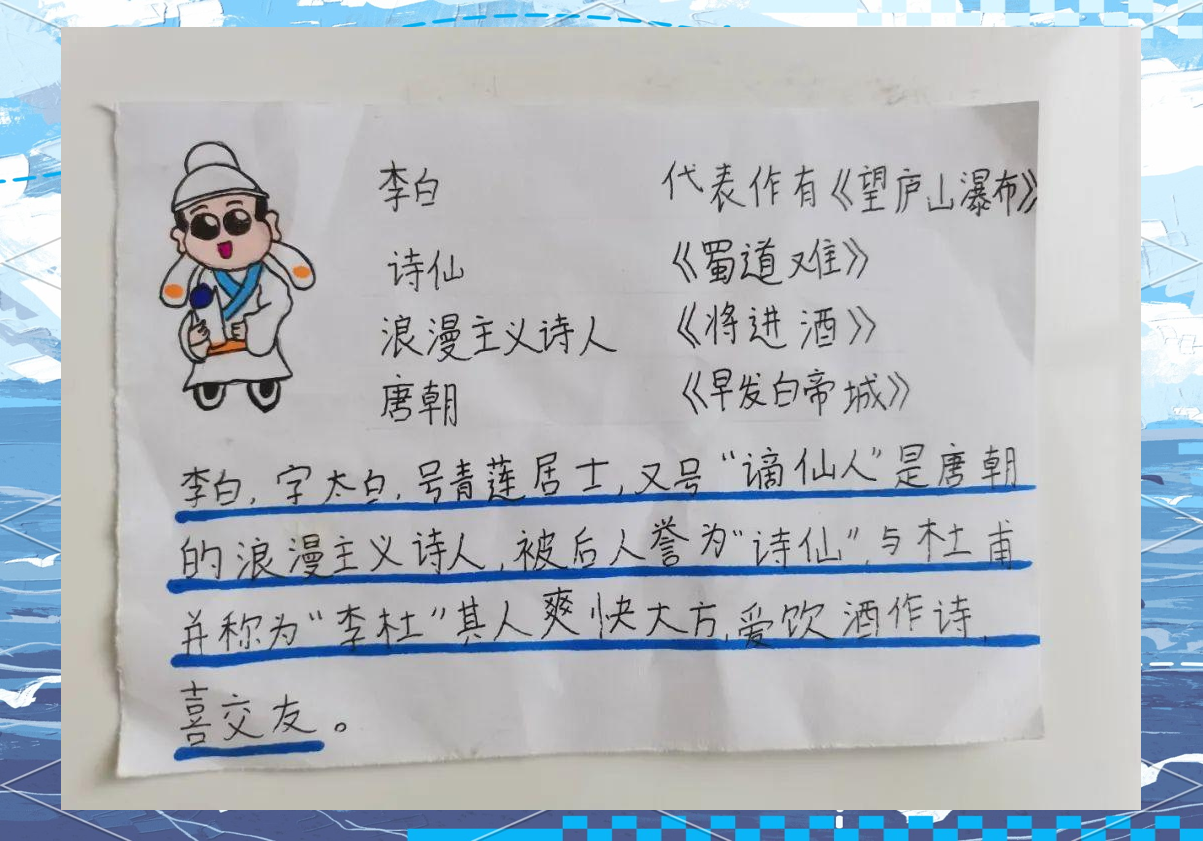 李白 代表作有《望庐山瀑布》
诗仙 《蜀道难》
浪漫主义诗人 《将进酒》
唐朝 《早发白帝城》
李白,字太白,号青莲居士,又号“谪仙人”是唐朝
的浪漫主义诗人,被后人誉为“诗仙”,与杜甫
并称为“李杜”其人爽快大方,爱饮酒作诗,
喜交友。